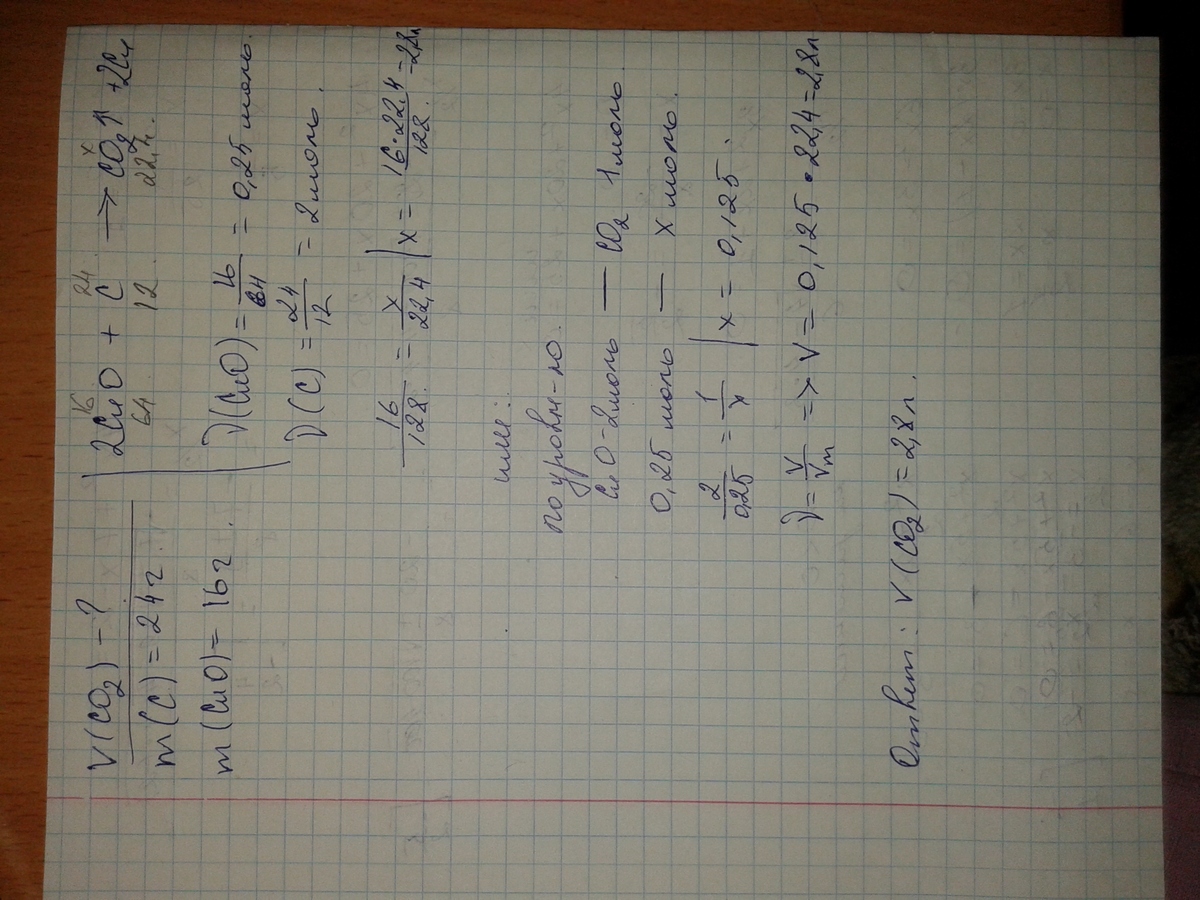 V(CO₂) – ?
m(C) = 24г
m(CuO) = 16г.
16 24 x
2CuO + C ⟶ CO₂↑ + 2Cu
64 12 22,4.
ν(CuO) = 16/64 = 0,25 моль.
ν(C) = 24/12 = 2 моль.
16/128 = x/22,4 | x = 16·22,4/128 = 2,8л
или:
по уровн-ю.
CuO – 2моль — CO₂ 1моль
0,25 моль — x моль.
2/0,25 = 1/x | x = 0,125.
ν = V/Vm => V = 0,125 • 22,4 = 2,8л
Ответ: V(CO₂) = 2,8л.